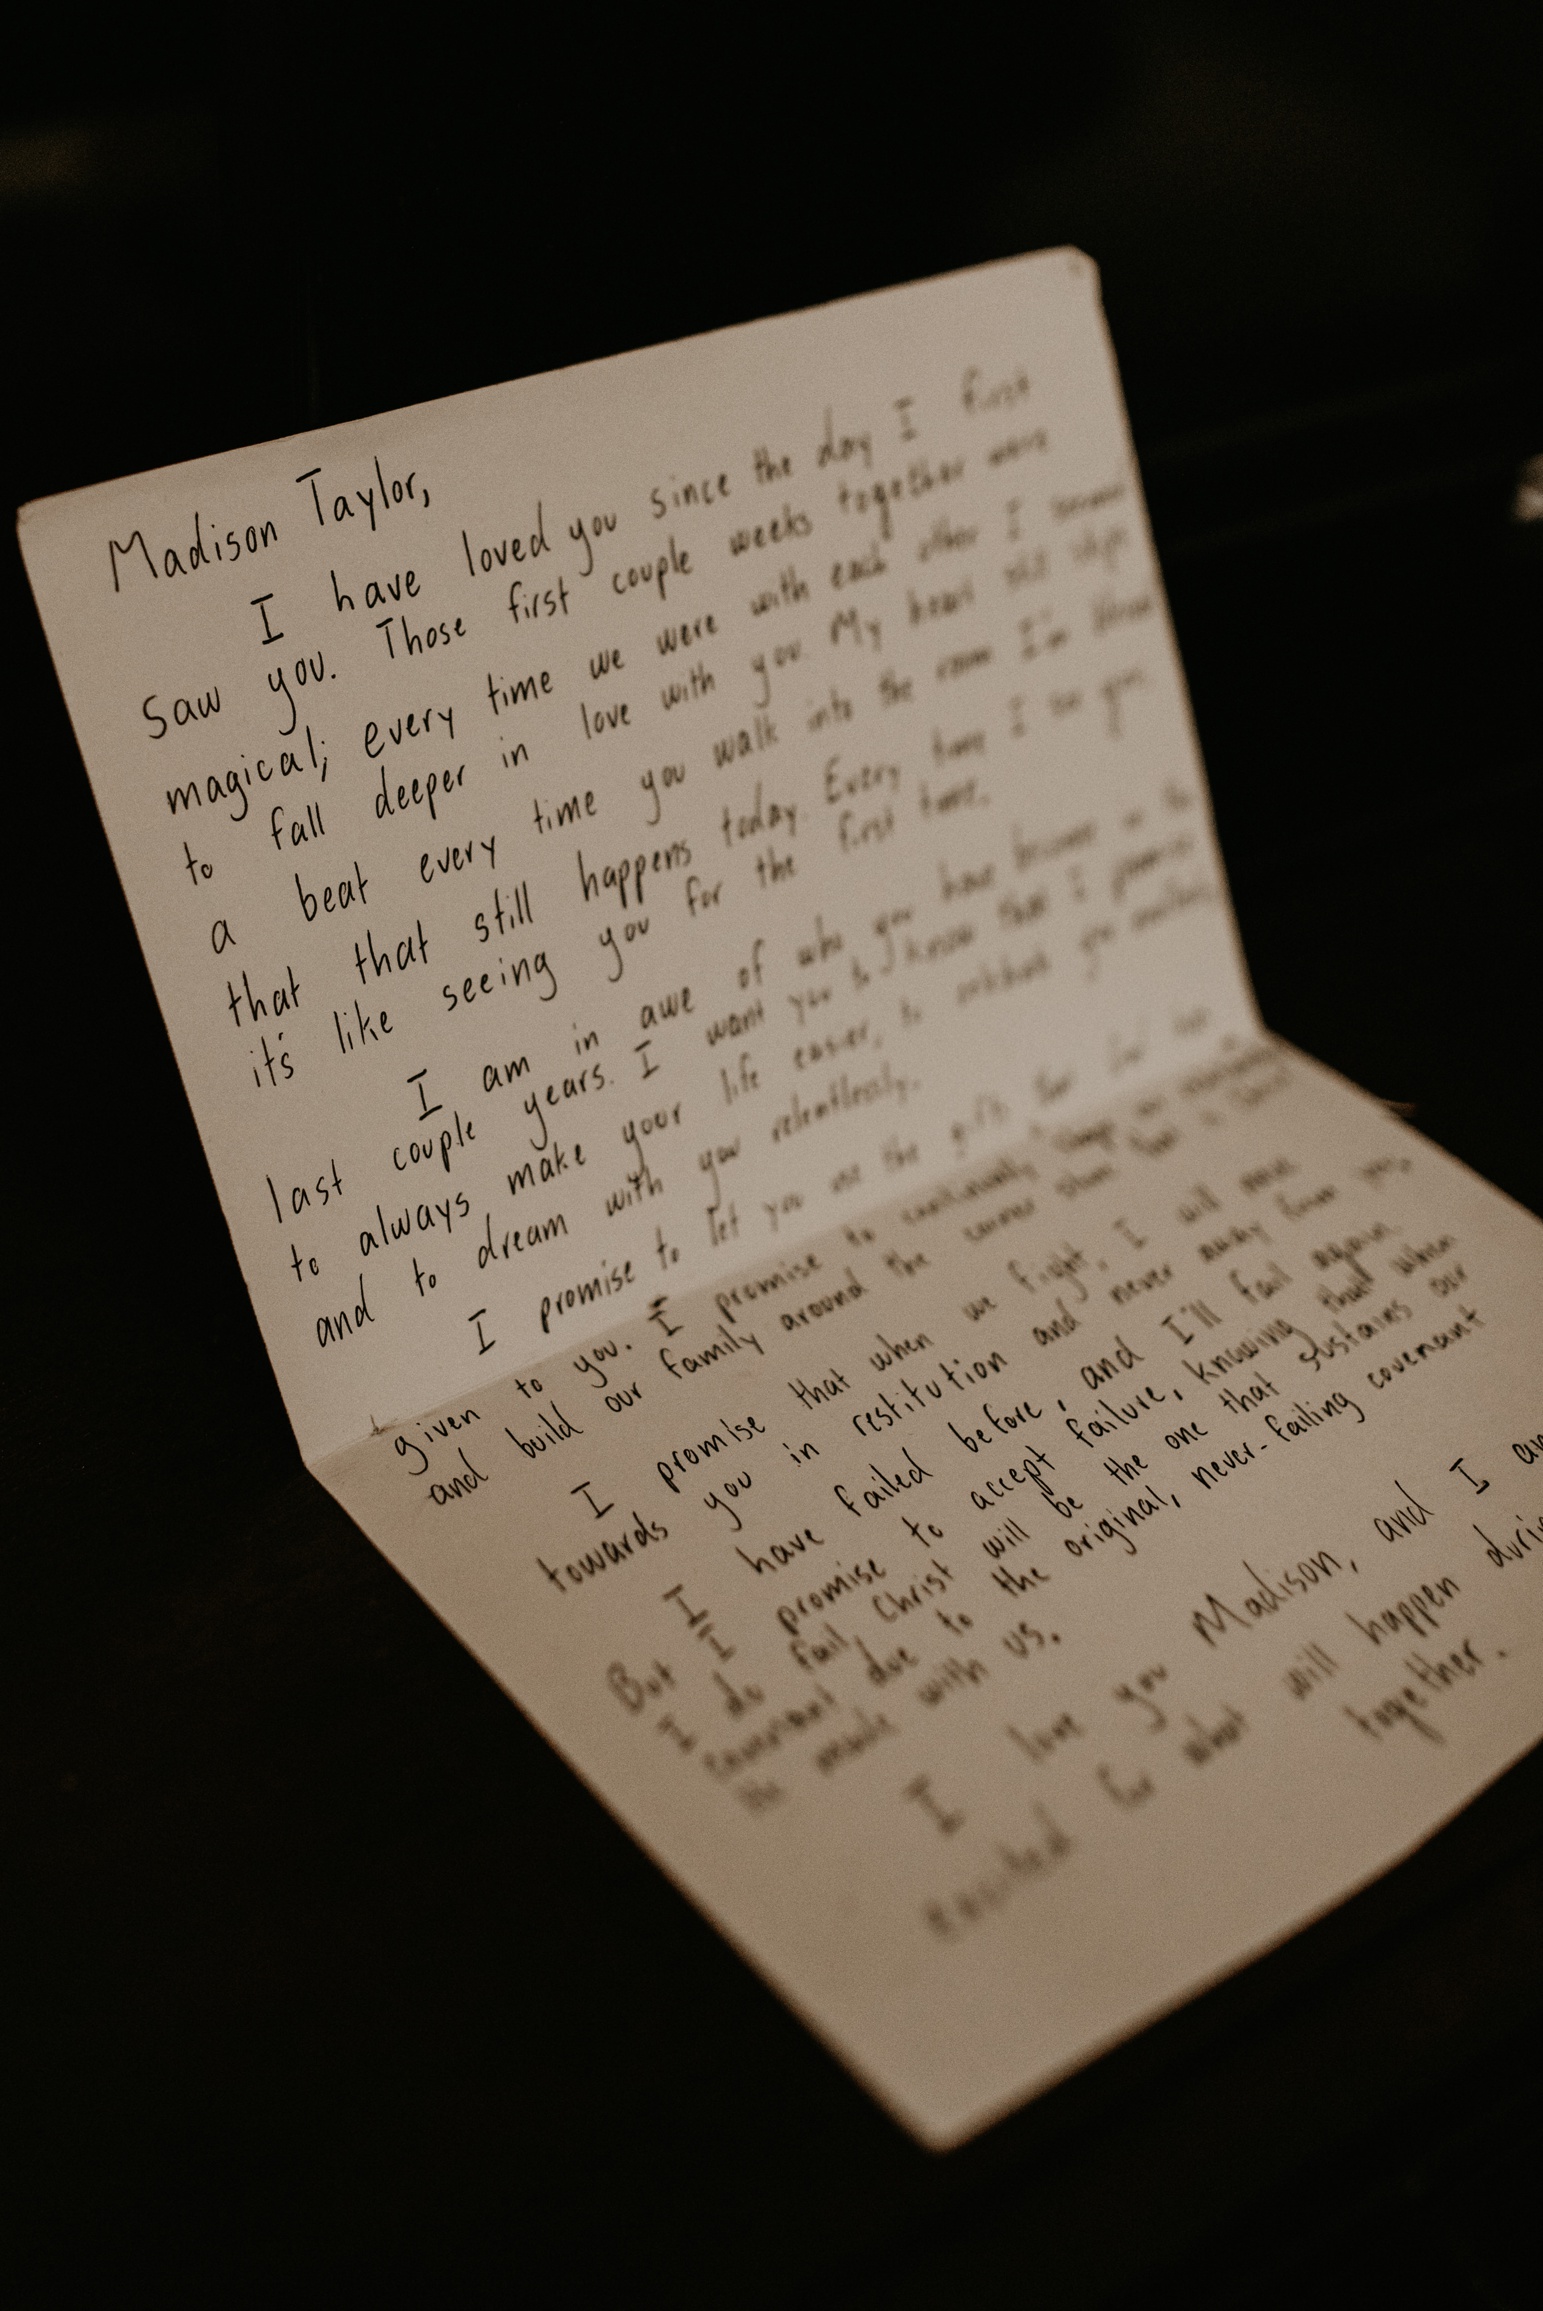 Madison Taylor,
I have loved you since the day I first
saw you. Those first couple weeks together were
magical; every time we were with each other I
to fall deeper in love with you. My heart still skips
a beat every time you walk into the room I'm
that that still happens today. Every time I see you,
it's like seeing you for the first time.
I am in awe of who you have become in the
last couple years. I want you to know that I promise
to always make your life easier, to
and to dream with you relentlessly.
I promise to let you use the gifts that God has
given to you. I promise to continually
and build our family around the corner stone that is
I promise that when we fight, I will
towards you in restitution and never away from you.
I have failed before, and I'll fail again.
But I promise to accept failure, knowing that when
I do fail, Christ will be the one that sustains our
covenant due to the original, never-failing covenant
He made with us.
I love you Madison, and I
excited for what will happen
together.